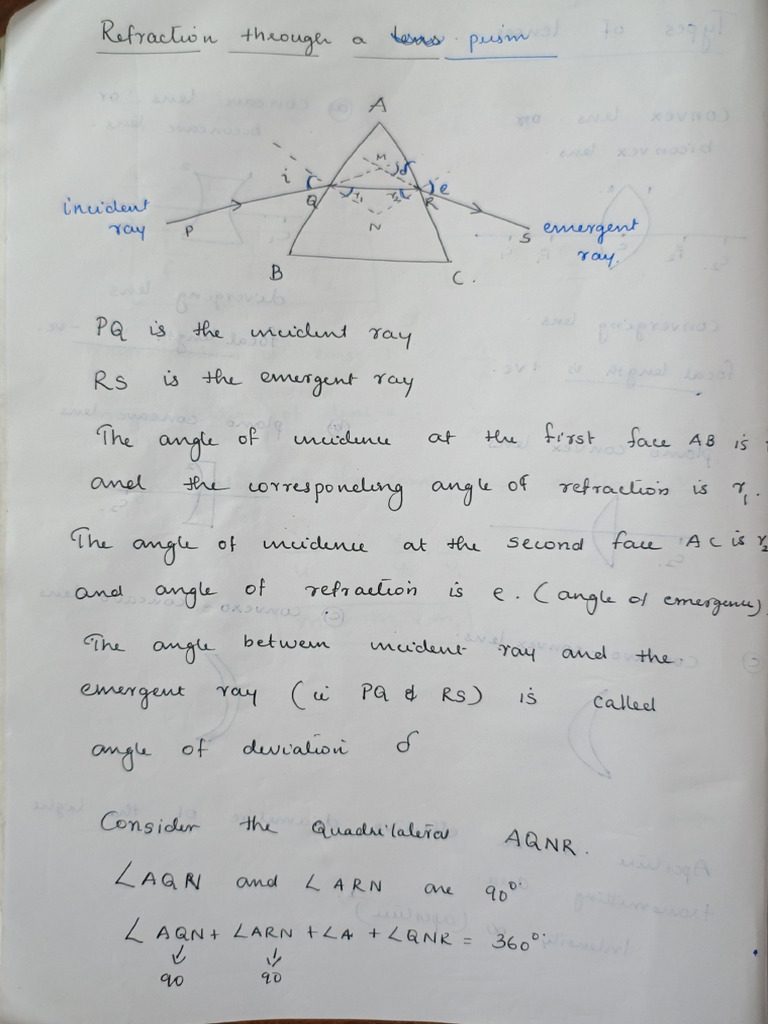 Refraction through a lens prism
A
M
δ
i
e
Q
r1
r2
R
incident
ray
P
N
S
emergent
ray.
B
C.
PQ is the incident ray
RS is the emergent ray
The angle of incidence at the first face AB is i
and the corresponding angle of refraction is r1.
The angle of incidence at the second face AC is r2
and angle of refraction is e. (angle of emergence)
The angle between incident ray and the.
emergent ray (ie PQ & RS) is called
angle of deviation δ
Consider the Quadrilateral AQNR.
∠AQN and ∠ARN are 90°.
∠AQN + ∠ARN + ∠A + ∠QNR = 360°.
90 90